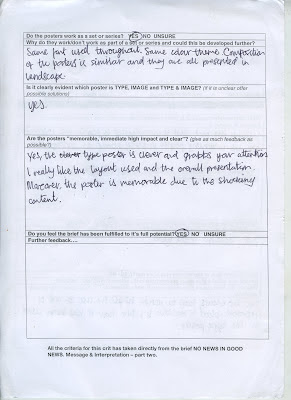 Do the posters work as a set or series? YES NO UNSURE
Why do they work/don't work as part of a set or series and could this be developed further?
Same font used throughout. Same colour theme. Composition
of the posters is similar and they are all presented in
landscape.
Is it clearly evident which poster is TYPE, IMAGE and TYPE & IMAGE? (if it is unclear offer
possible solutions)
yes.
Are the posters "memorable, immediate high impact and clear"? (give as much feedback as
possible!)
Yes, the clever type poster is clever and grabbs your attention
I really like the layout used and the overall presentation.
Moreover, the poster is memorable due to the shocking
content.
Do you feel the brief has been fulfilled to it's full potential? YES NO UNSURE
Further feedback....
All the criteria for this crit has taken directly from the brief NO NEWS IN GOOD
NEWS. Message & Interpretation – part two.